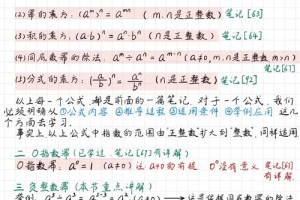 (2)幂的乘方: (aᵐ)ⁿ = aᵐⁿ (m.n是正整数) 笔记[63]
(3)积的乘方: (a·b)ⁿ = aⁿ·bⁿ (n是正整数) 笔记[64]
(4)同底数幂的除法: aᵐ÷aⁿ = aᵐ⁻ⁿ (a≠0, m.n是正整数 m>n) 笔记[67]
(5)分式的乘方: (a/b)ⁿ = aⁿ/bⁿ (n是正整数) 笔记[92]
以上每一个公式都是前面的一篇笔记. 对于一个公式, 我们
必须明确从①公式内容 ②推导过程 ③适用条件 ④举例应用 这几
个方面去学习.
事实上以上公式中指数的范围由"正整数"扩大到"整数", 同样适用.
二 0指数幂(已学过, 笔记[67]有详解)
0指数幂, a⁰ = 1 (a≠0) 这a0的有极 0⁰没有意义 笔记[67]有详解
三 负整数幂(本节重点讲解)